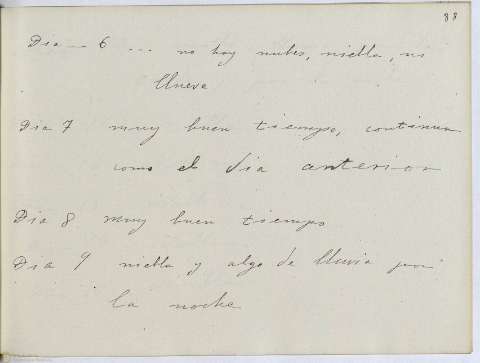 88
Dia - 6 ... no hay nubes, niebla, ni
llueve
Dia 7 muy buen tiempo, continua
como el dia anterior
Dia 8 muy buen tiempo
Dia 9 niebla y algo de lluvia por
la noche